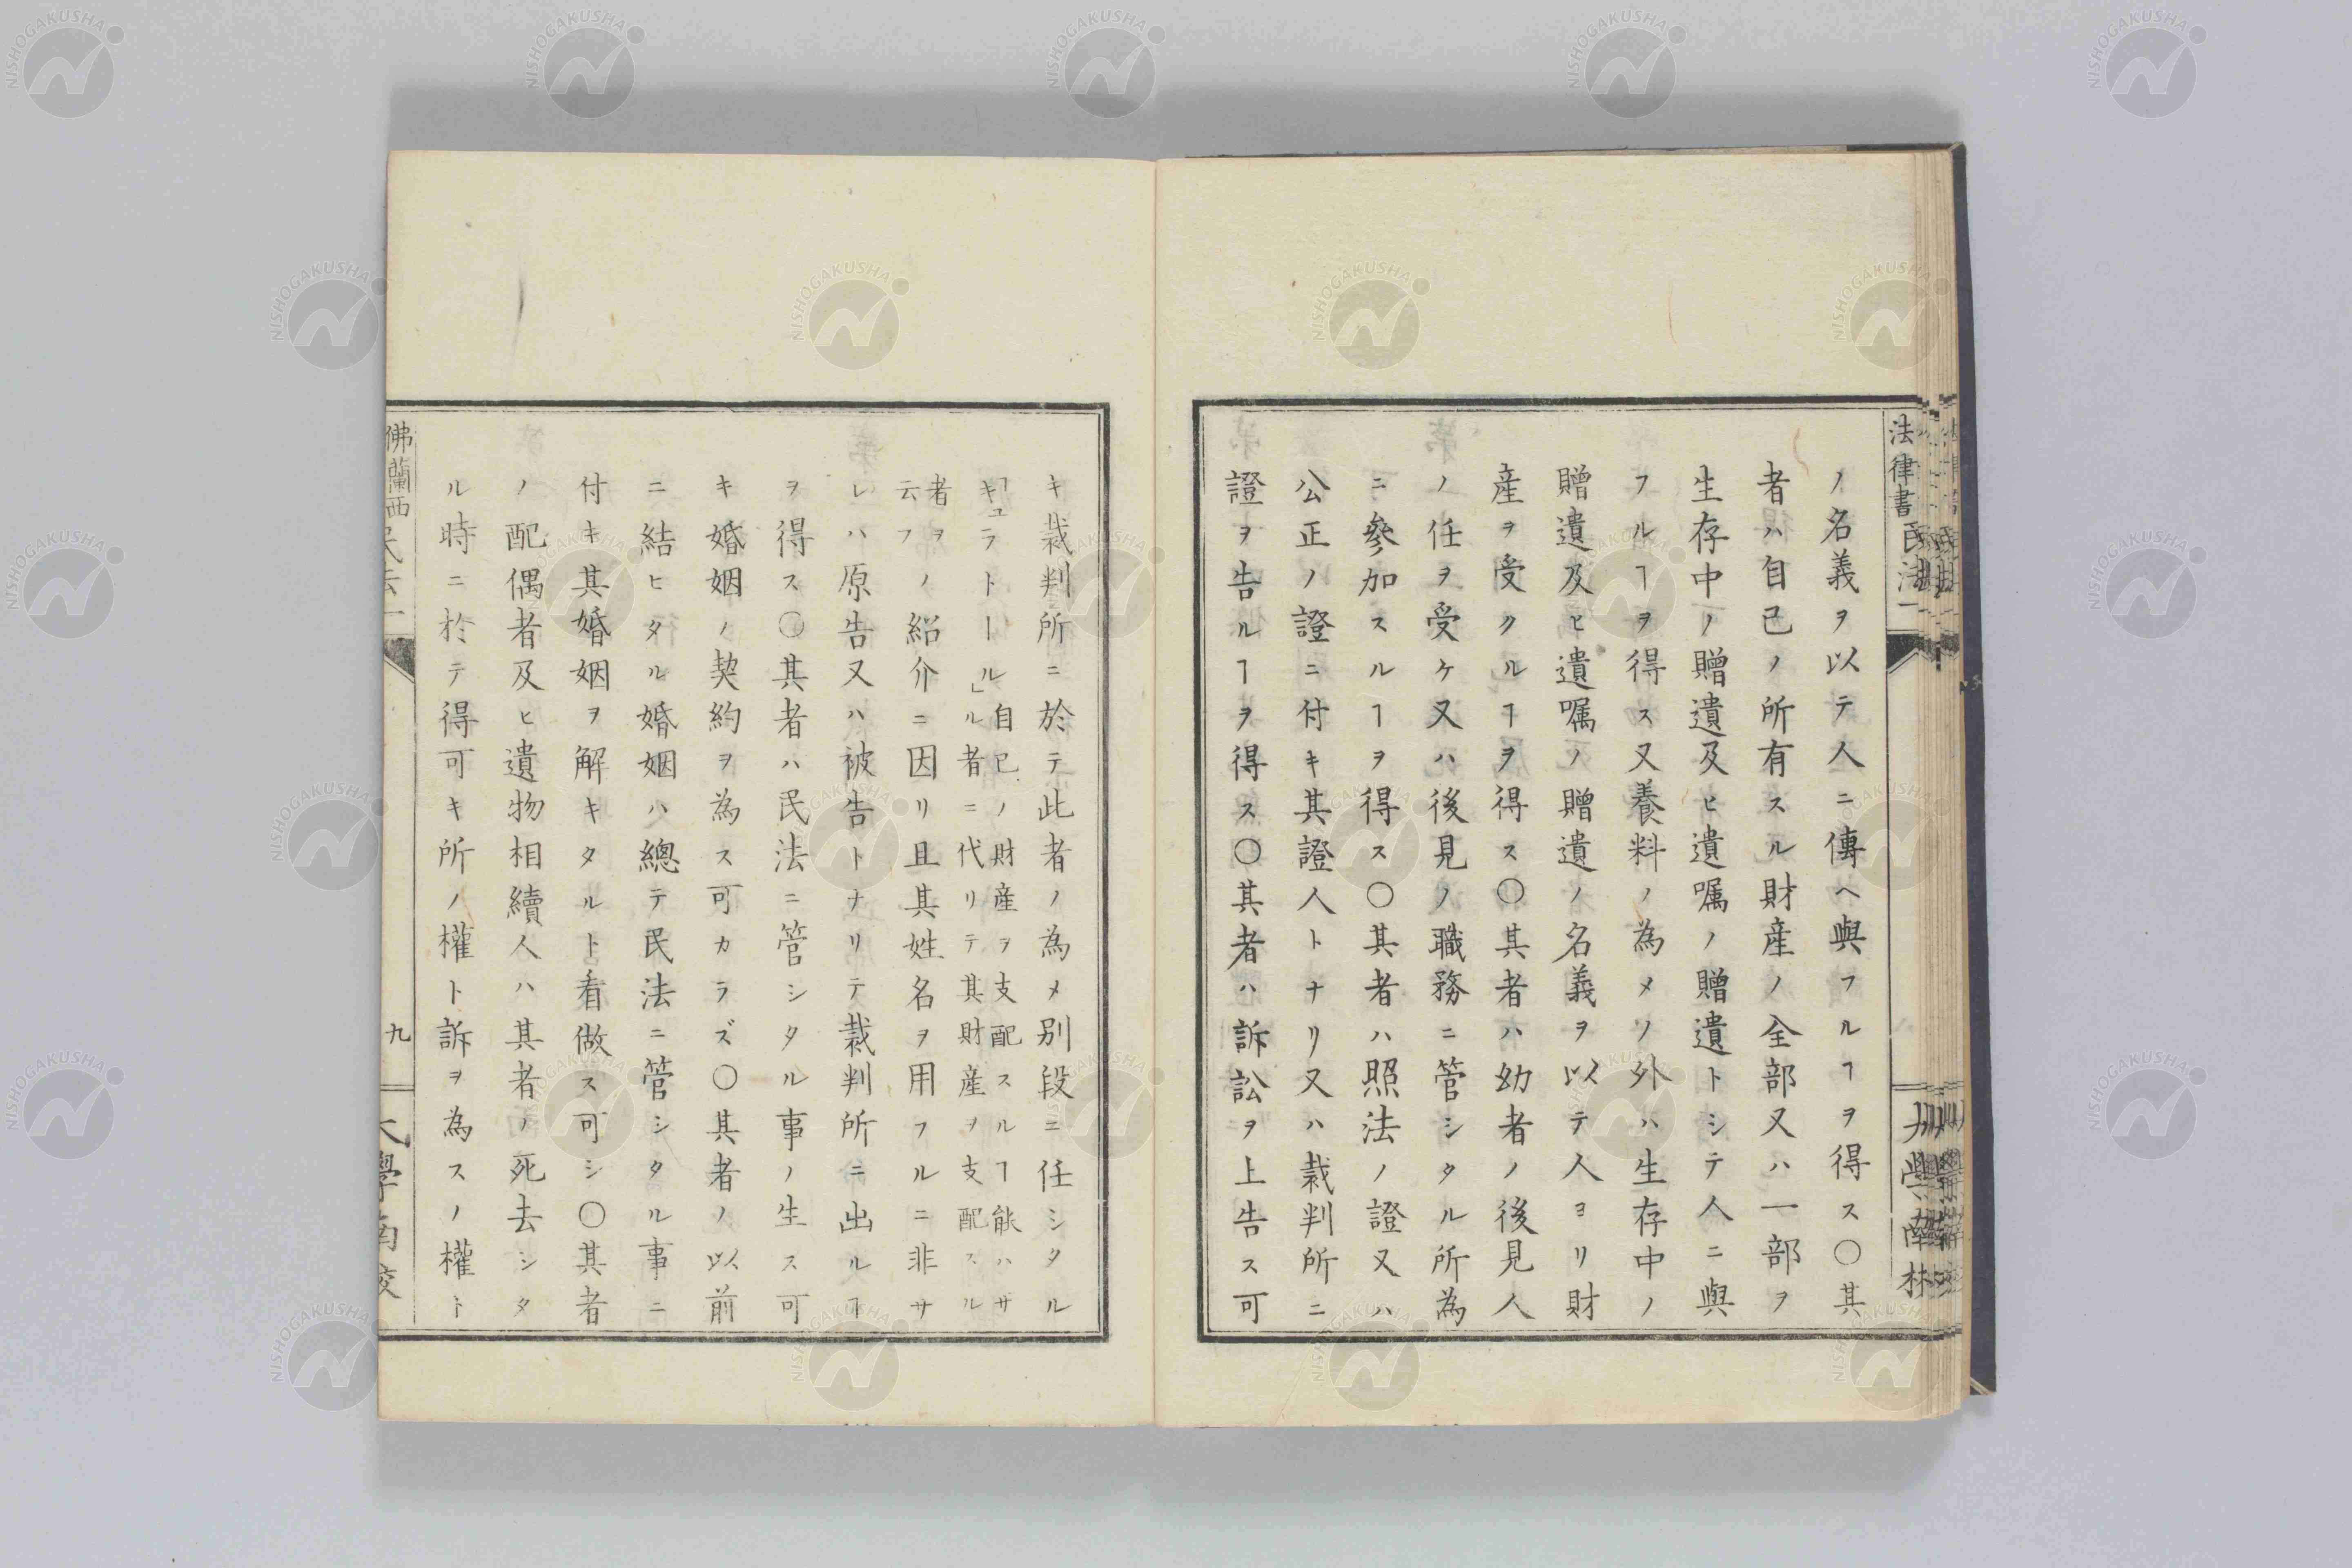 ノ名義ヲ以テ人ニ傳ヘ與フルヿヲ得ス〇其
者ハ自己ノ所有スル財産ノ全部又ハ一部ヲ
生存中ノ贈遺及ヒ遺嘱ノ贈遺トシテ人ニ與
フルヿヲ得ス又養料ノ為メノ外ハ生存中ノ
贈遺及ヒ遺嘱ノ贈遺ノ名義ヲ以テ人ヨリ財
産ヲ受クルヿヲ得ス〇其者ハ幼者ノ後見人
ノ任ヲ受ケ又ハ後見ノ職務ニ管シタル所為
ニ參加スルヿヲ得ス〇其者ハ照法ノ證又ハ
公正ノ證ニ付キ其證人トナリ又ハ裁判所ニ
證ヲ告ルヿヲ得ス〇其者ハ訴訟ヲ上告ス可
キ裁判所ニ於テ此者ノ為メ別段ニ任シタル
キユラトール」自己ノ財産ヲ支配スルヿ能ハサ
ル者ニ代リテ其財産ヲ支配スル
者ヲ
云フ
ノ紹介ニ因リ且其姓名ヲ用フルニ非サ
レハ原告又ハ被告トナリテ裁判所ニ出ルヿ
ヲ得ス〇其者ハ民法ニ管シタル事ノ生ス可
キ婚姻ノ契約ヲ為ス可カラズ〇其者ノ以前
ニ結ヒタル婚姻ハ總テ民法ニ管シタル事ニ
付キ其婚姻ヲ解キタルト看做ス可シ〇其者
ノ配偶者及ヒ遺物相續人ハ其者ノ死去シタ
ル時ニ於テ得可キ所ノ權ト訴ヲ為スノ權ト
法律書 民法一
佛蘭西民法一
九
大學南校
NISHOGAKUSHA